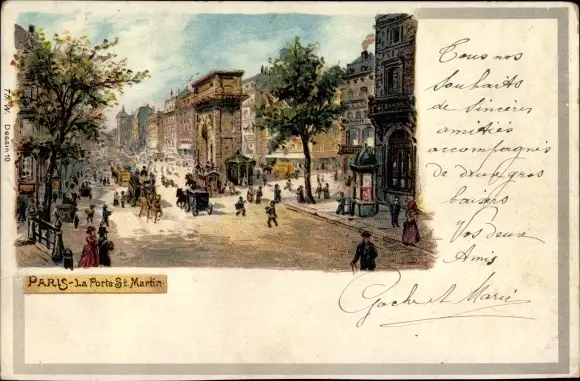 T.W. Dessin 10
PARIS - La Porte St. Martin
Tous nos
souhaits
de sincères
amitiés
accompagnés
de deux gros
baisers
Vos deux
Amis
et Marie